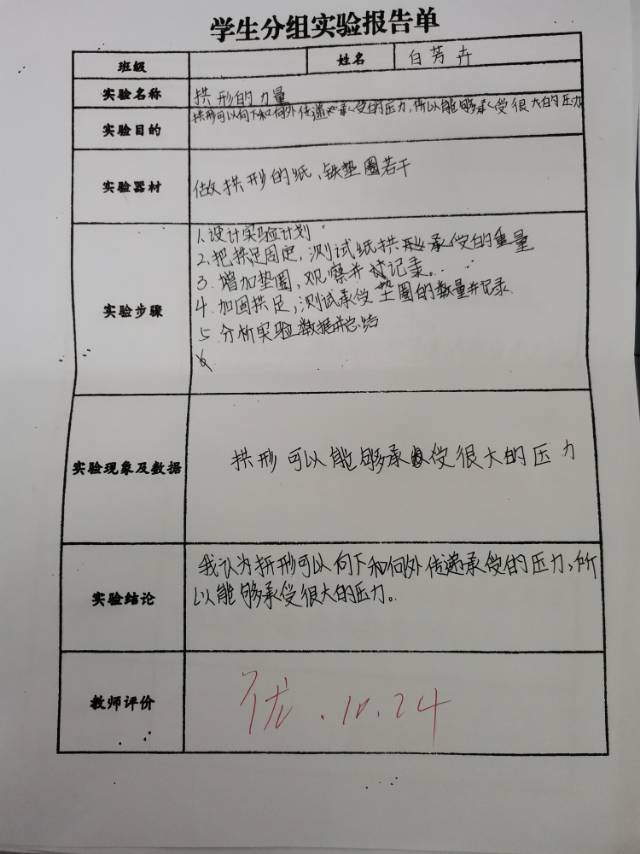 学生分组实验报告单
班级 姓名 白芳卉
实验名称 拱形的力量
实验目的 拱形可以向下和向外传递承受的压力,所以能够承受很大的压力
实验器材 做拱形的纸、铁垫圈若干
实验步骤
1、设计实验计划
2、把拱足固定,测试纸拱形承受的重量
3、增加垫圈,观察并记录。
4、加固拱足,测试承受垫圈的数量并记录
5、分析实验数据并总结
实验现象及数据 拱形可以能够承受很大的压力
实验结论 我认为拱形可以向下和向外传递承受的压力,所
以能够承受很大的压力。
教师评价 优.10.24